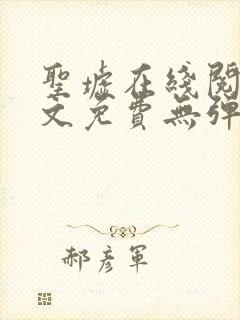 聖墟在綫閱
文免費無彈
郝彦軍